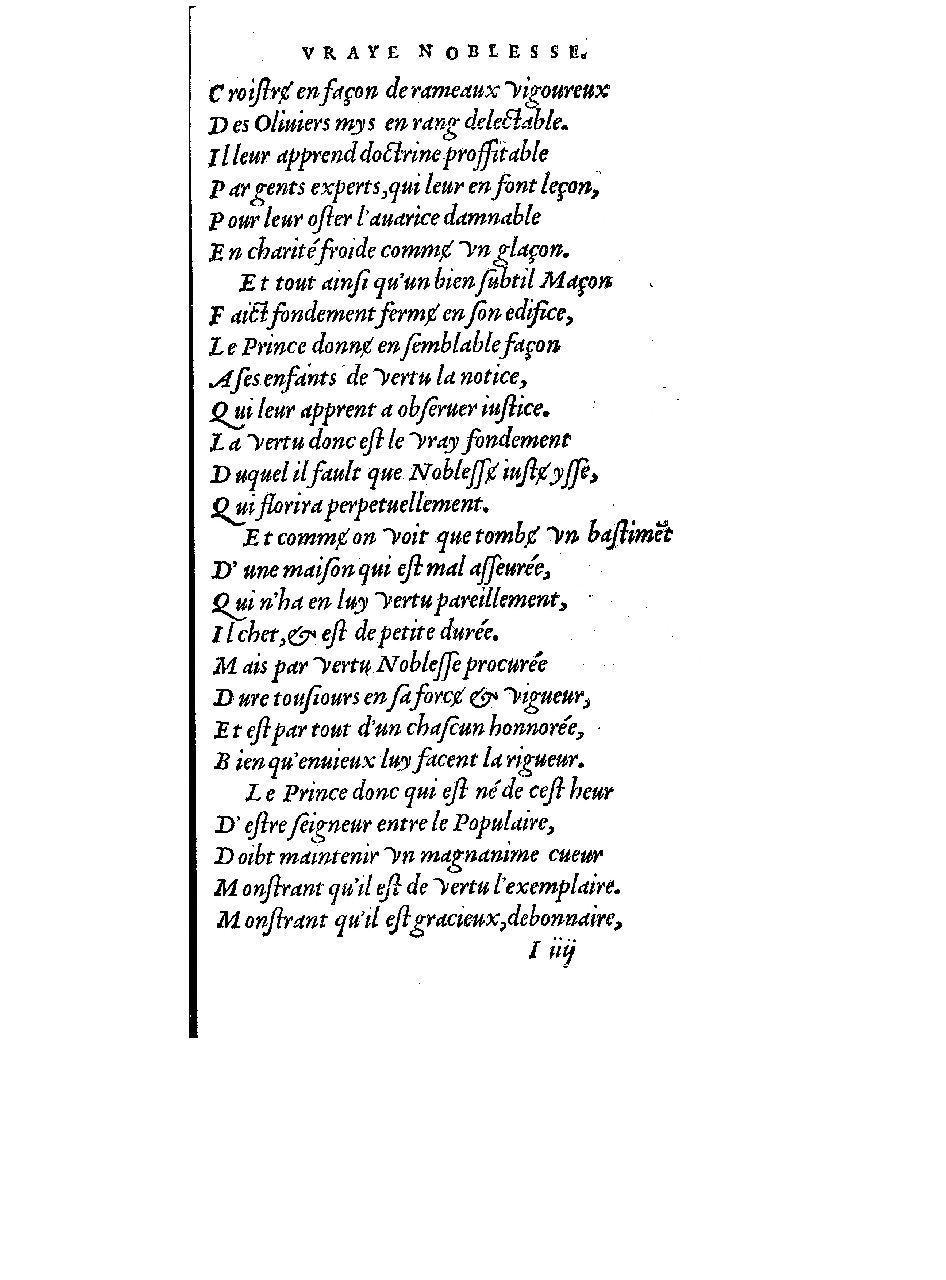 VRAYE NOBLESSE.
Croiſtrɇ en façon de rameaux vigoureux
Des Oliuiers mys en rang delectable.
Il leur apprend doctrine proffitable
Par gents experts, qui leur en font leçon,
Pour leur oſter l'auarice damnable
En charité froide commɇ vn glaçon.
Et tout ainſi qu'un bien ſubtil Maçon
Faict fondement fermɇ en ſon edifice,
Le Prince donnɇ en ſemblable façon
A ſes enfants de vertu la notice,
Qui leur apprent a obſeruer iuſtice.
La vertu donc eſt le vray fondement
Duquel il fault que Nobleſſɇ iuſtɇ yſſe,
Qui florira perpetuellement.
Et commɇ on voit que tombɇ vn baſtimẽt
D'une maiſon qui eſt mal aſſeurée,
Qui n'ha en luy vertu pareillement,
Il chet, & eſt de petite durée.
Mais par vertu Nobleſſe procurée
Dure touſiours en ſa forcɇ & vigueur,
Et eſt par tout d'un chaſcun honnorée,
Bien qu'enuieux luy facent la rigueur.
Le Prince donc qui eſt né de ceſt heur
D'eſtre ſeigneur entre le Populaire,
Doibt maintenir vn magnanime cueur
Monſtrant qu'il eſt de vertu l'exemplaire.
Monſtrant qu'il eſt gracieux, debonnaire,
I iiij